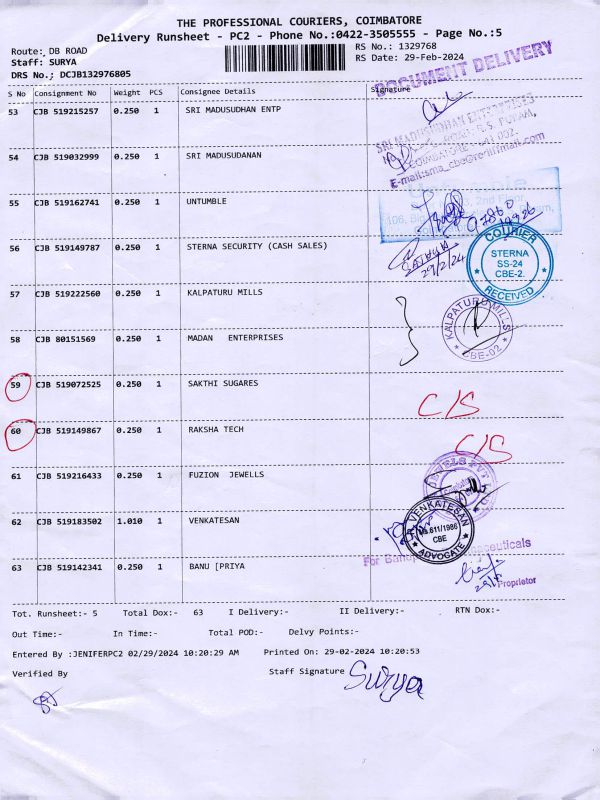 THE PROFESSIONAL COURIERS, COIMBATORE
Delivery Runsheet - PC2 - Phone No.:0422-3505555 - Page No.:5
Route: DB ROAD
Staff: SURYA
DRS No.; DCJB132976805
RS No.: 1329768
RS Date: 29-Feb-2024
DOCUMENT DELIVERY
S No Consignment No Weight PCS Consignee Details Signature
53 CJB 519215257 0.250 1 SRI MADUSUDHAN ENTP
SRI MADUSUDHAN ENTERPRISES
54 CJB 519032999 0.250 1 SRI MADUSUDANAN
55 CJB 519162741 0.250 1 UNTUMBLE
2nd Floor
56 CJB 519149787 0.250 1 STERNA SECURITY (CASH SALES)
29/2/24
COURIER
STERNA
SS-24
CBE-2.
RECEIVED
57 CJB 519222560 0.250 1 KALPATURU MILLS
KALPATURU MILLS
CBE-02
58 CJB 80151569 0.250 1 MADAN ENTERPRISES
59 CJB 519072525 0.250 1 SAKTHI SUGARES
C/S
60 CJB 519149867 0.250 1 RAKSHA TECH
C/S
61 CJB 519216433 0.250 1 FUZION JEWELLS
62 CJB 519183502 1.010 1 VENKATESAN
VENKATESAN
611/1986
CBE
ADVOCATE
63 CJB 519142341 0.250 1 BANU [PRIYA
Proprietor
Tot. Runsheet:- 5 Total Dox:- 63 I Delivery:- II Delivery:- RTN Dox:-
Out Time:- In Time:- Total POD:- Delvy Points:-
Entered By :JENIFERPC2 02/29/2024 10:20:29 AM Printed On: 29-02-2024 10:20:53
Verified By Staff Signature Surya